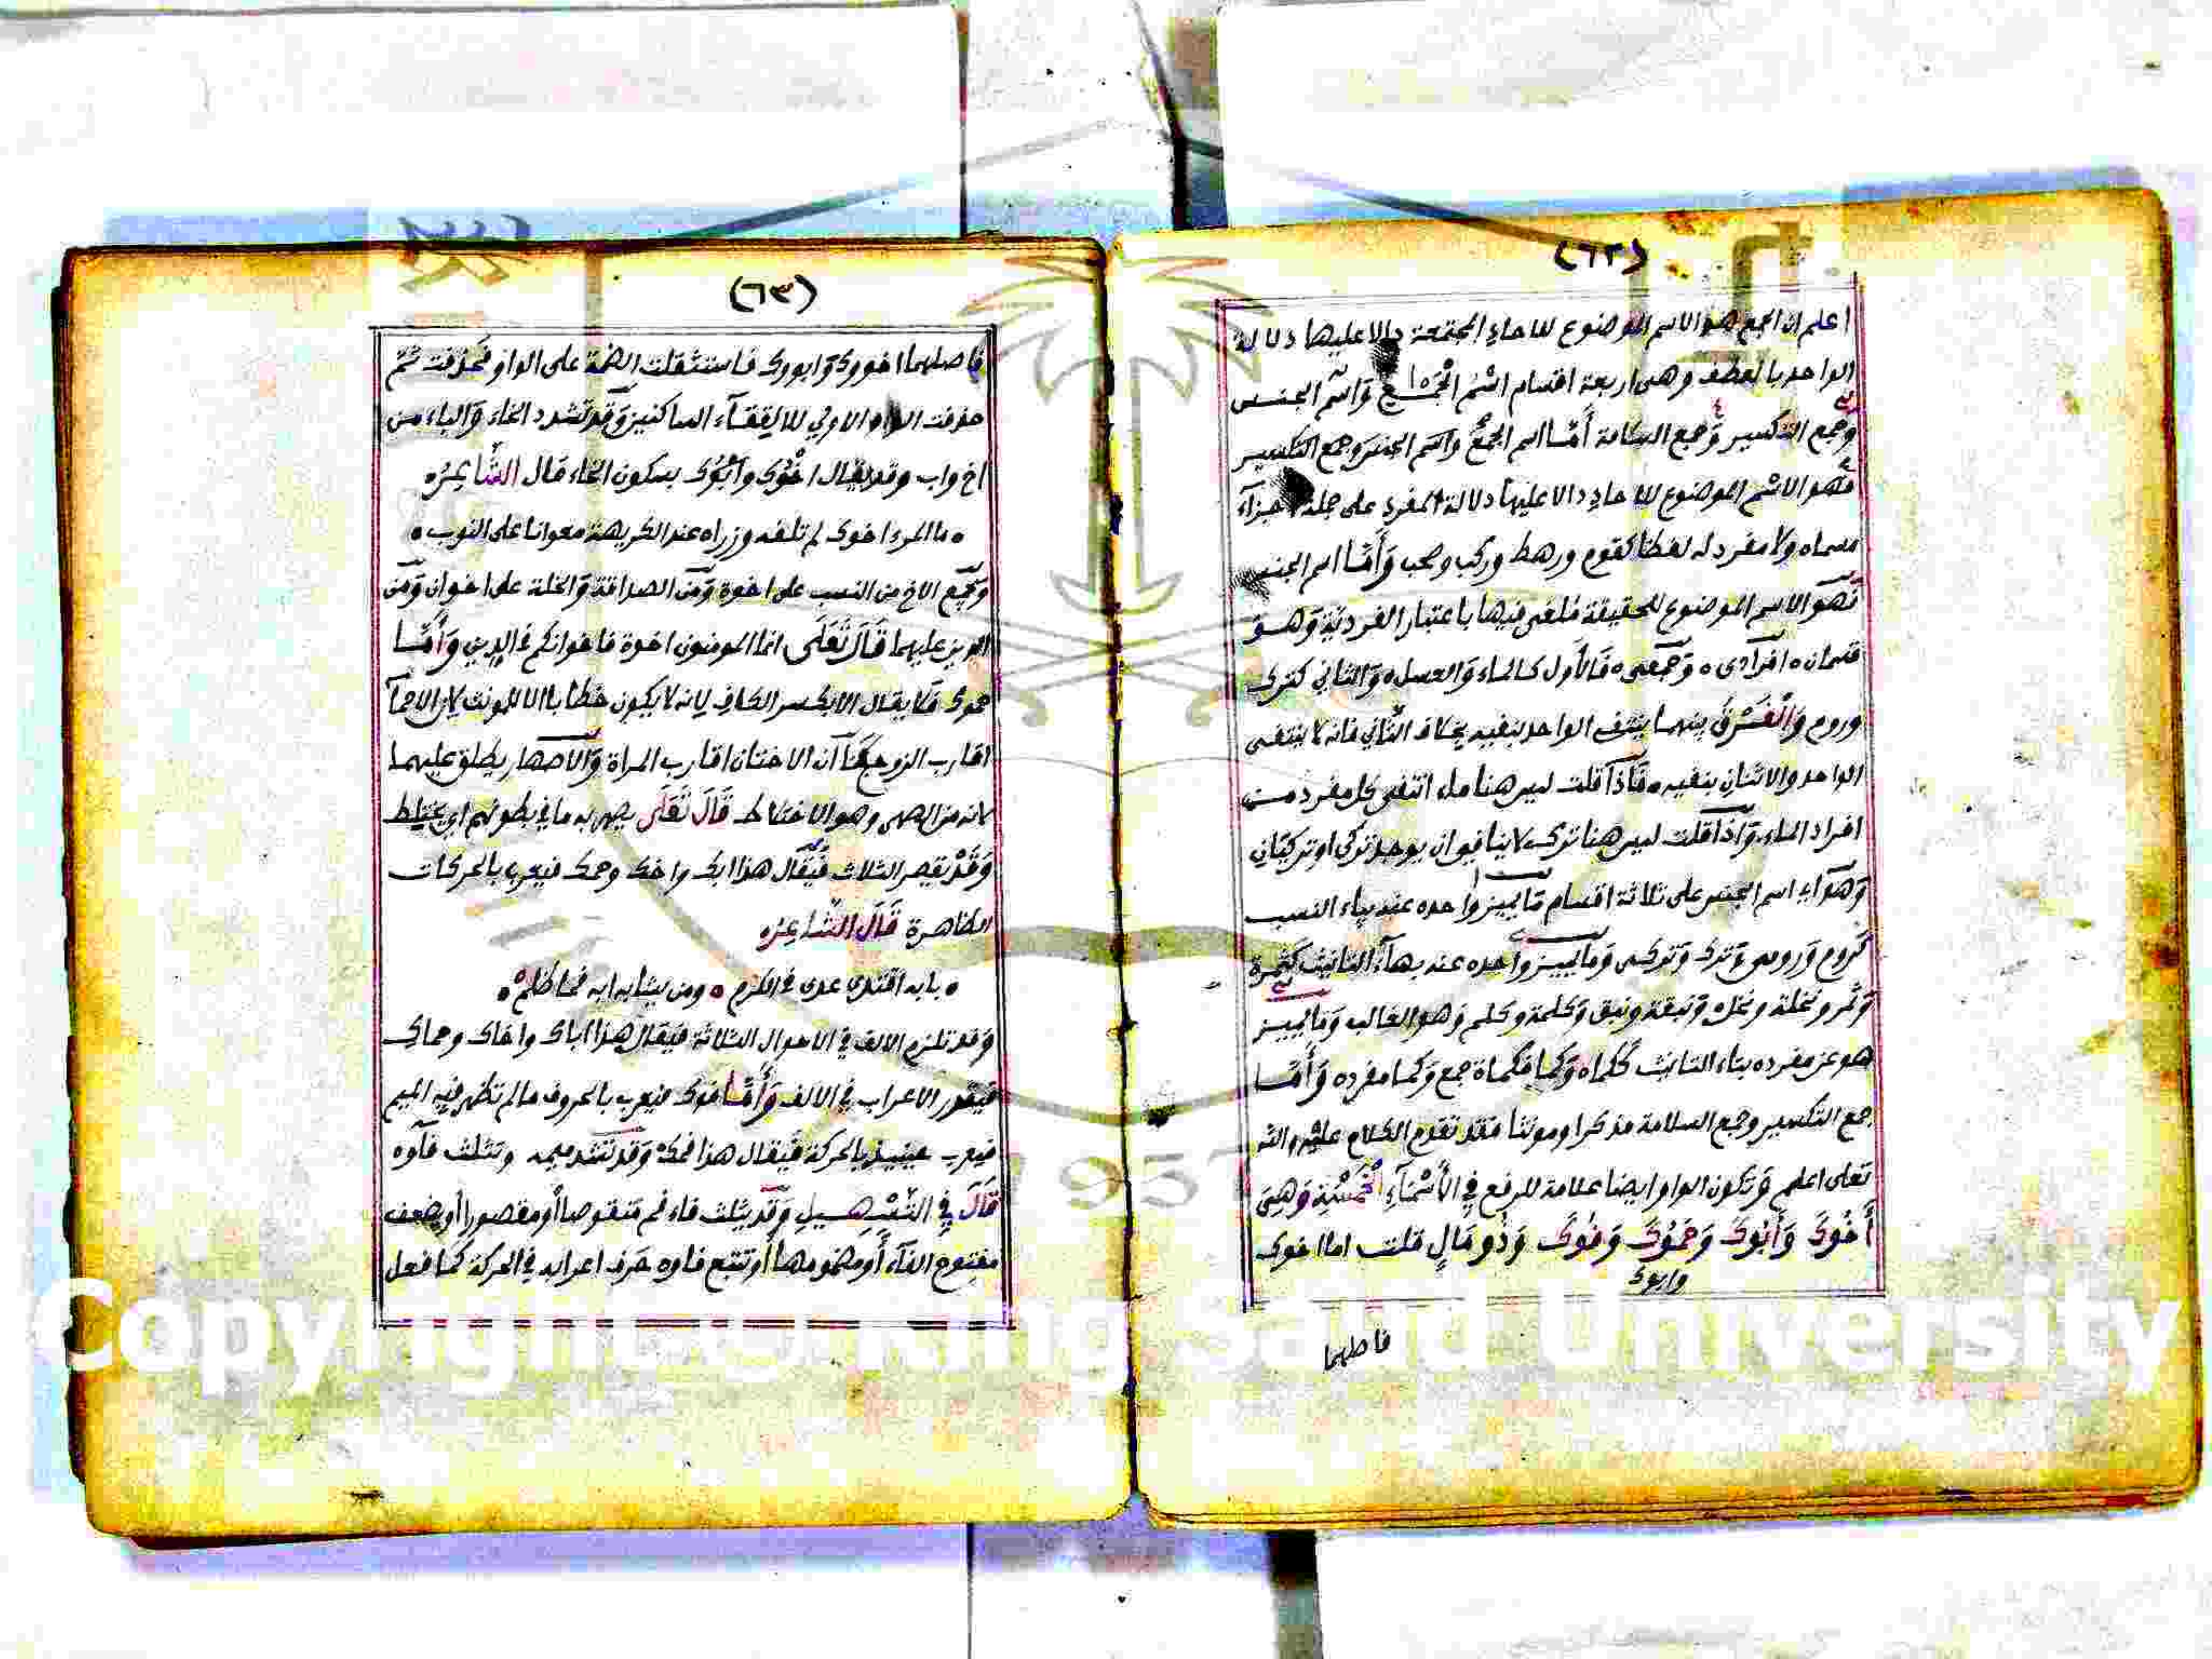 (٦٢)
اعلم ان الجمع هو الاسم الموضوع للاحاد المجتمعة دالا عليها دلالة
الواحد بالعطف وهى اربعة اقسام اسْمُ الْجَمْعِ وَاسم الجنس
وجمع التكسير وَجمع السلامة أَمَّا اسم الجمع واسم الجنس وجمع التكسير
فهو الاسم الموضوع للاحاد دالا عليها دلالة المفرد على جملة اجزآء
مسماه ولا مفرد له لفظا كقوم ورهط وركب وصحب وَأَمَّا اسم الجنس
فَهو الاسم الموضوع للحقيقة ملغى فيها باعتبار الفردية وَهو
قسمان افرادى وَجمعى فَالأول كالماء وَالعسل وَالثاني كترك
وروم وَالْفَرْقُ بينهما ينتفى الواحد بنفيه بخلاف الثاني فانه لا ينتفى
الواحد والاثنان بنفيه فَاذا قلت ليس هنا ماء انتفى كل مفرد من
افراد الماء وَاذا قلت ليس هنا ترك لا ينافي ان يوجد تركي او تركيان
وَهو اى اسم الجنس على ثلاثة اقسام مَا يميز واحده عنه بياء النسب
كَروم وَرومى وَترك وَتركى وَما يميز واحده عنه بهآء التانيث كثمرة
وَثمر ونخلة ونخل وَنبقة ونبق وَكلمة وكلم وَهو الغالب وَما يميز
هو عن مفرده بتاء التانيث ككماه وَكما فكماة جمع وَكما مفرده وَأَمَّا
جمع التكسير وجمع السلامة مذكرا ومونثا فقد تقدم الكلام عليه والله
تعلى اعلم وَتكون الواو ايضا علامة للرفع فِي الأَسْمَآءِ الْخَمْسَةِ وَهِىَ
أَخُوكَ وَأَبُوكَ وَحَمُوكَ وَفُوكَ وَذُو مَالٍ قلت اما اخوك
وابوك
فاصلهما
(٦٣)
فاصلهما اخووك وَابووك فاستثقلت الضمة على الواو فحذفت ثم
حذفت الواو الاولي لالتقآء الساكنين وَقد تشدد الخاء وَالباء من
اخ واب وقد يقال اخْوُك وأبْوُك بسكون الخاء قال الشَّاعِرُ
ما المرء اخوك لم تلفه وزرا عند الكريهة معوانا على النوب
وَيجمع الاخ من النسب على اخوة وَمن الصداقة وَالخلة على اخوان وَمن
الدين عليهما قَالَ تَعَلَى انما المومنون اخوة فاخوانكم فى الدين وَأَمَّا
حموك فَلا يقال الا بكسر الكاف لانه لا يكون خطابا الا للمونث لان الاحمآ
اقارب الزوج كَمَا ان الاختان اقارب المراة وَالاصهار يطلق عليهما
لانه من الصهر وهو الاختلاط قَالَ تَعَلَى يصهر به ما في بطونهم اي يختلط
وَقَدْ يقصر الثلاث فَيُقَال هذا ابك واخك وحمك فيعرب بالحركات
الظاهرة قَالَ الشَّاعِرُ
بابه اقتدى عدى في الكرم ومن يشابه ابه فما ظلم
وَقد تلزم الالف في الاحوال الثلاثة فيقال هذا اباك واخاك وحماك
فيقدر الاعراب في الالف وَأَمَّا فوك فيعرب بالحروف ما لم تظهر فيه الميم
فيعرب حينيذ بالحركة فَيقال هذا فمك وَقد تشدد ميمه وتثلث فآوه
قَالَ فِي التَّسْهِيل وَقد يثلث فاء فم مَنقوصا أو مقصورا أو يضعف
مفتوح الفآء أو مضمومها أو تتبع فاوه حَرف اعرابه في الحركة كما فعل
Copyright © King Saud University